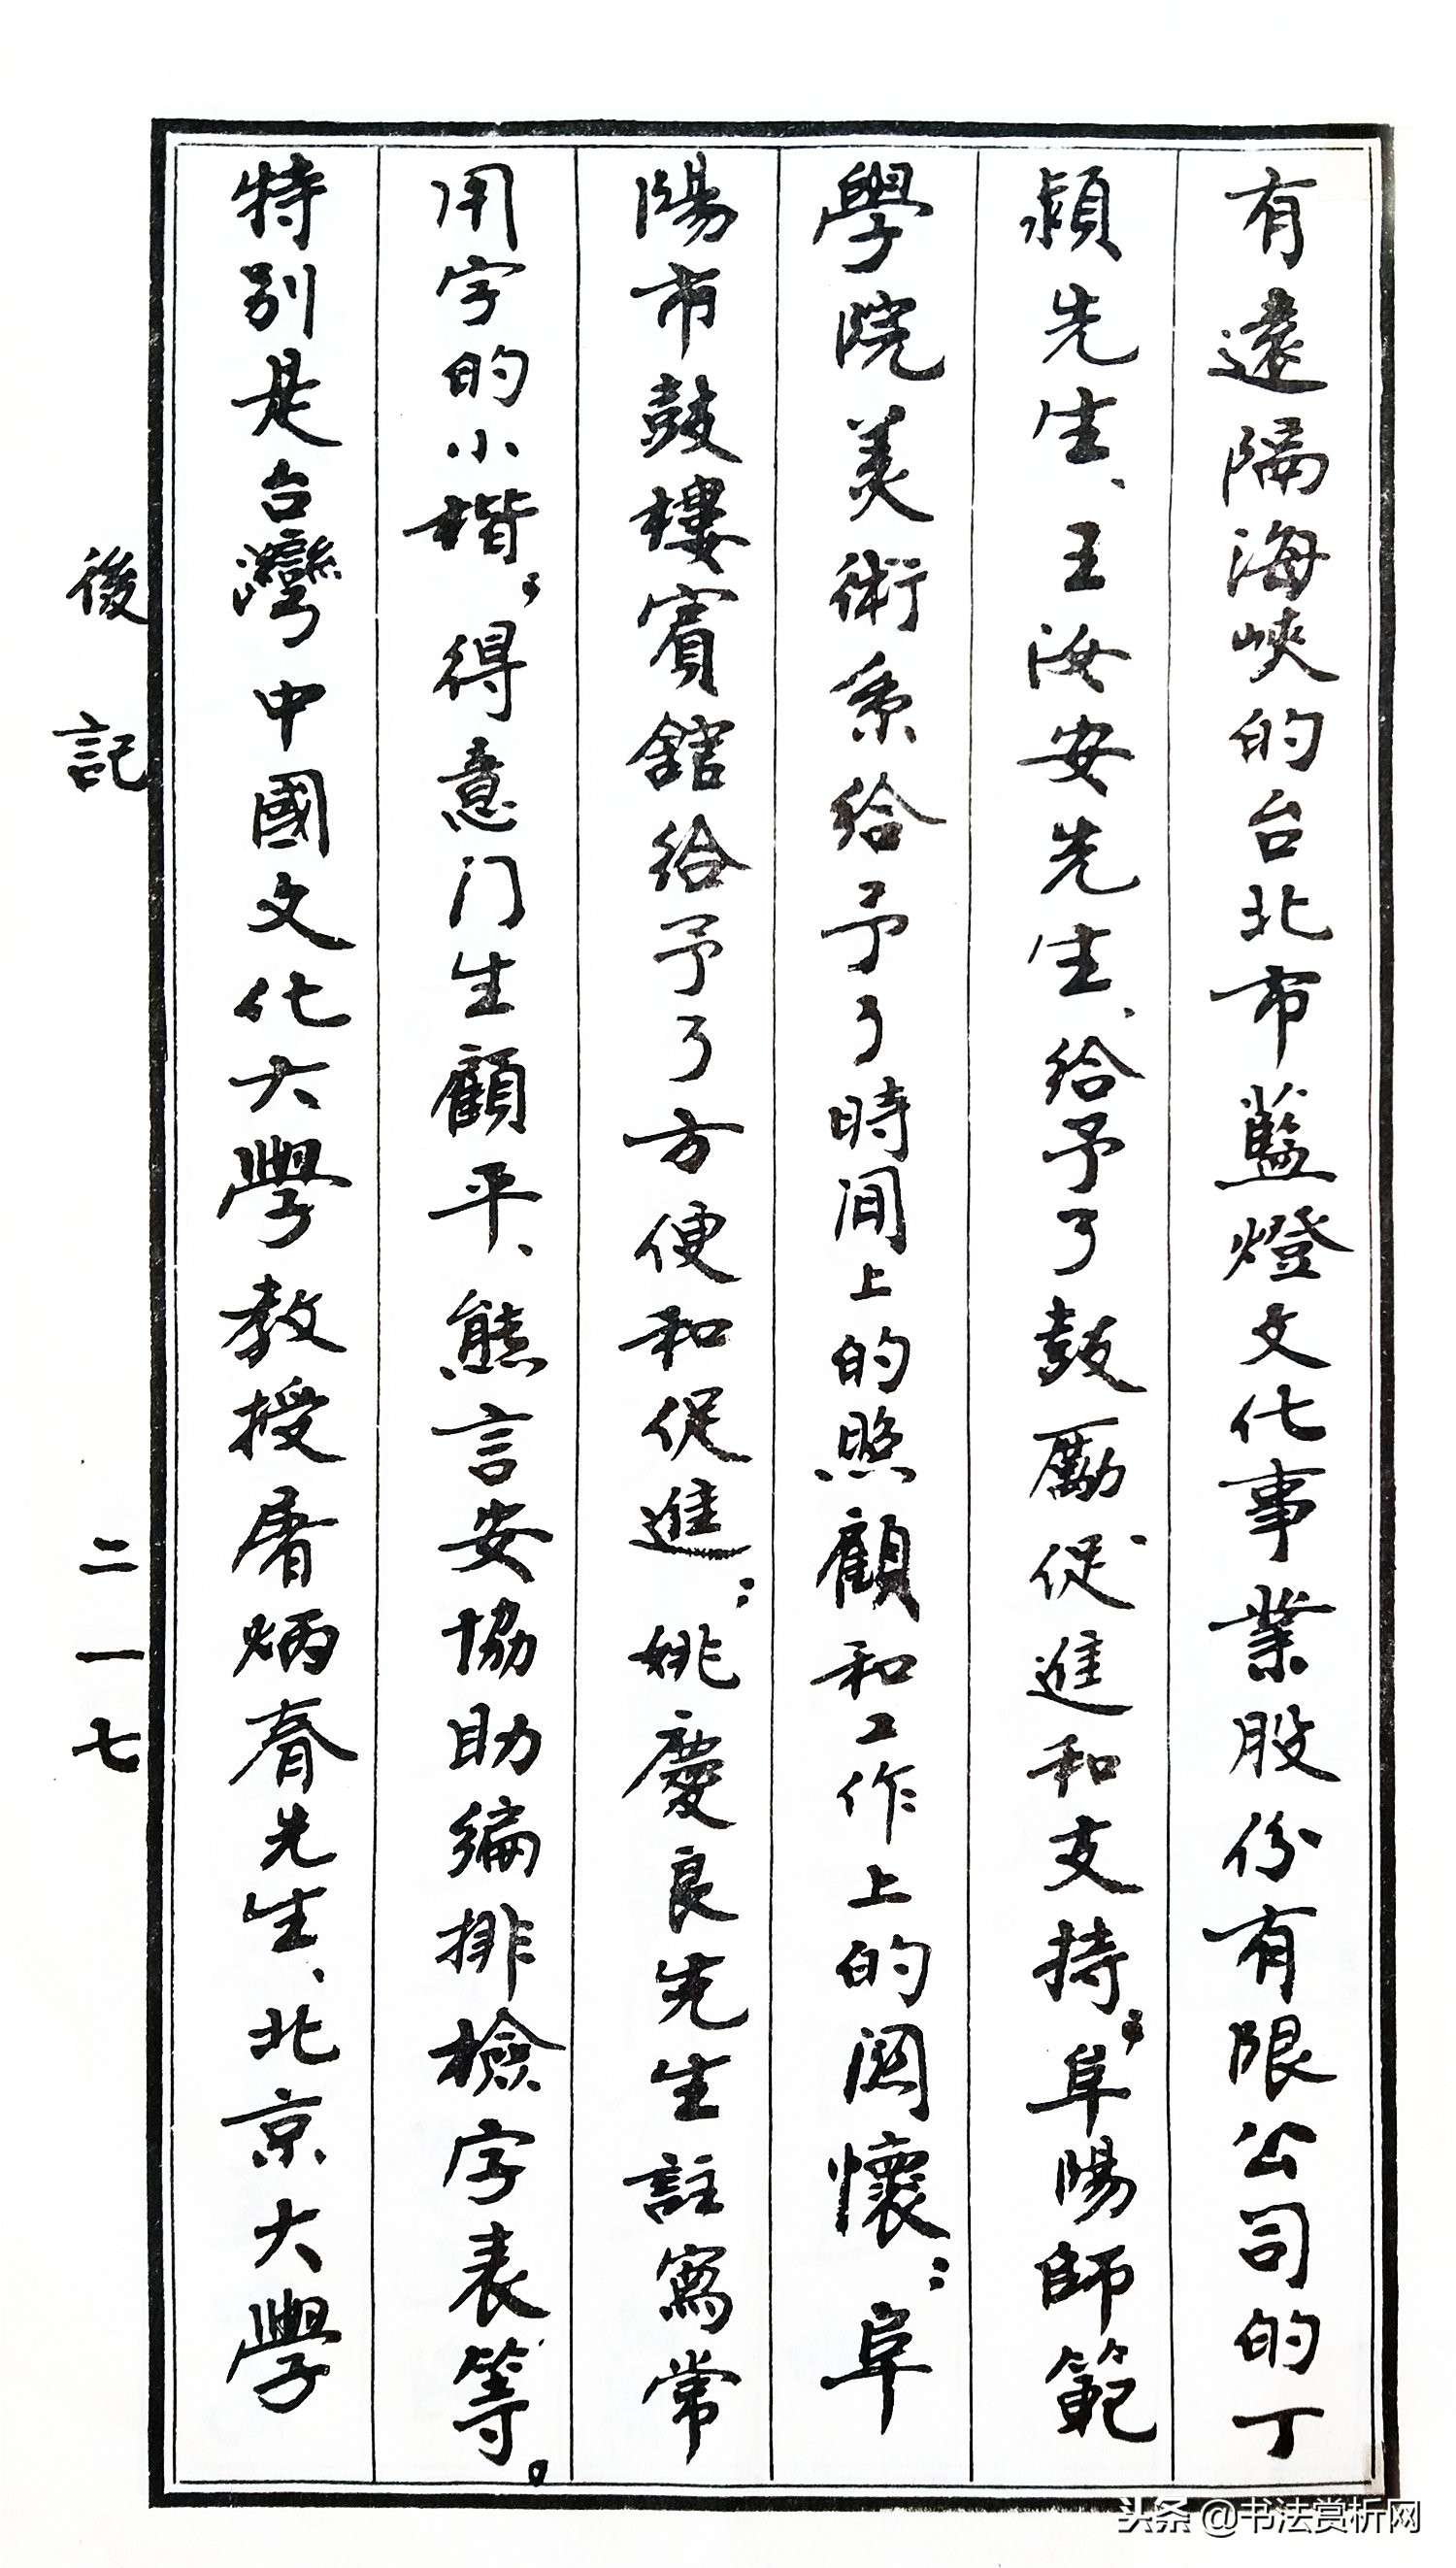 有遠隔海峽的台北市藍燈文化事業股份有限公司的丁
潁先生、王汝安先生、給予了鼓勵促進和支持；阜陽師範
學院美術系給予了時间上的照顧和工作上的関懷；阜
陽市鼓樓賓舘給予了方便和促進；姚慶良先生註寫常
用字的小楷；得意门生顧平、熊言安協助编排檢字表等。
特别是台灣中國文化大學教授屠炳春先生、北京大學
後記
二一七
头条 @书法赏析网